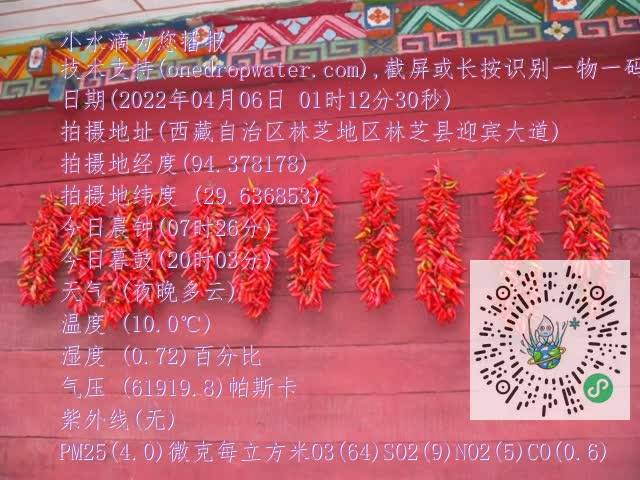 小水滴为您播报
技术支持(onedropwater.com),截屏或长按识别一物一码
日期(2022年04月06日 01时12分30秒)
拍摄地址(西藏自治区林芝地区林芝县迎宾大道)
拍摄地经度(94.378178)
拍摄地纬度 (29.636853)
今日晨钟(07时26分)
今日暮鼓(20时03分)
天气 (夜晚多云)
温度 (10.0℃)
湿度 (0.72)百分比
气压 (61919.8)帕斯卡
紫外线(无)
PM25(4.0)微克每立方米O3(64)SO2(9)NO2(5)CO(0.6)